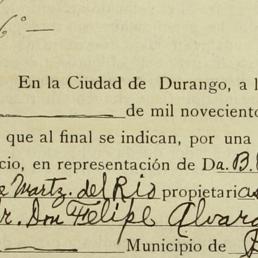 6º —
En la Ciudad de Durango, a l
de mil noveciento
que al final se indican, por una
cio, en representación de Da. B.
Martz. del Rio propietarias
r. Don Felipe Alvar
Municipio de